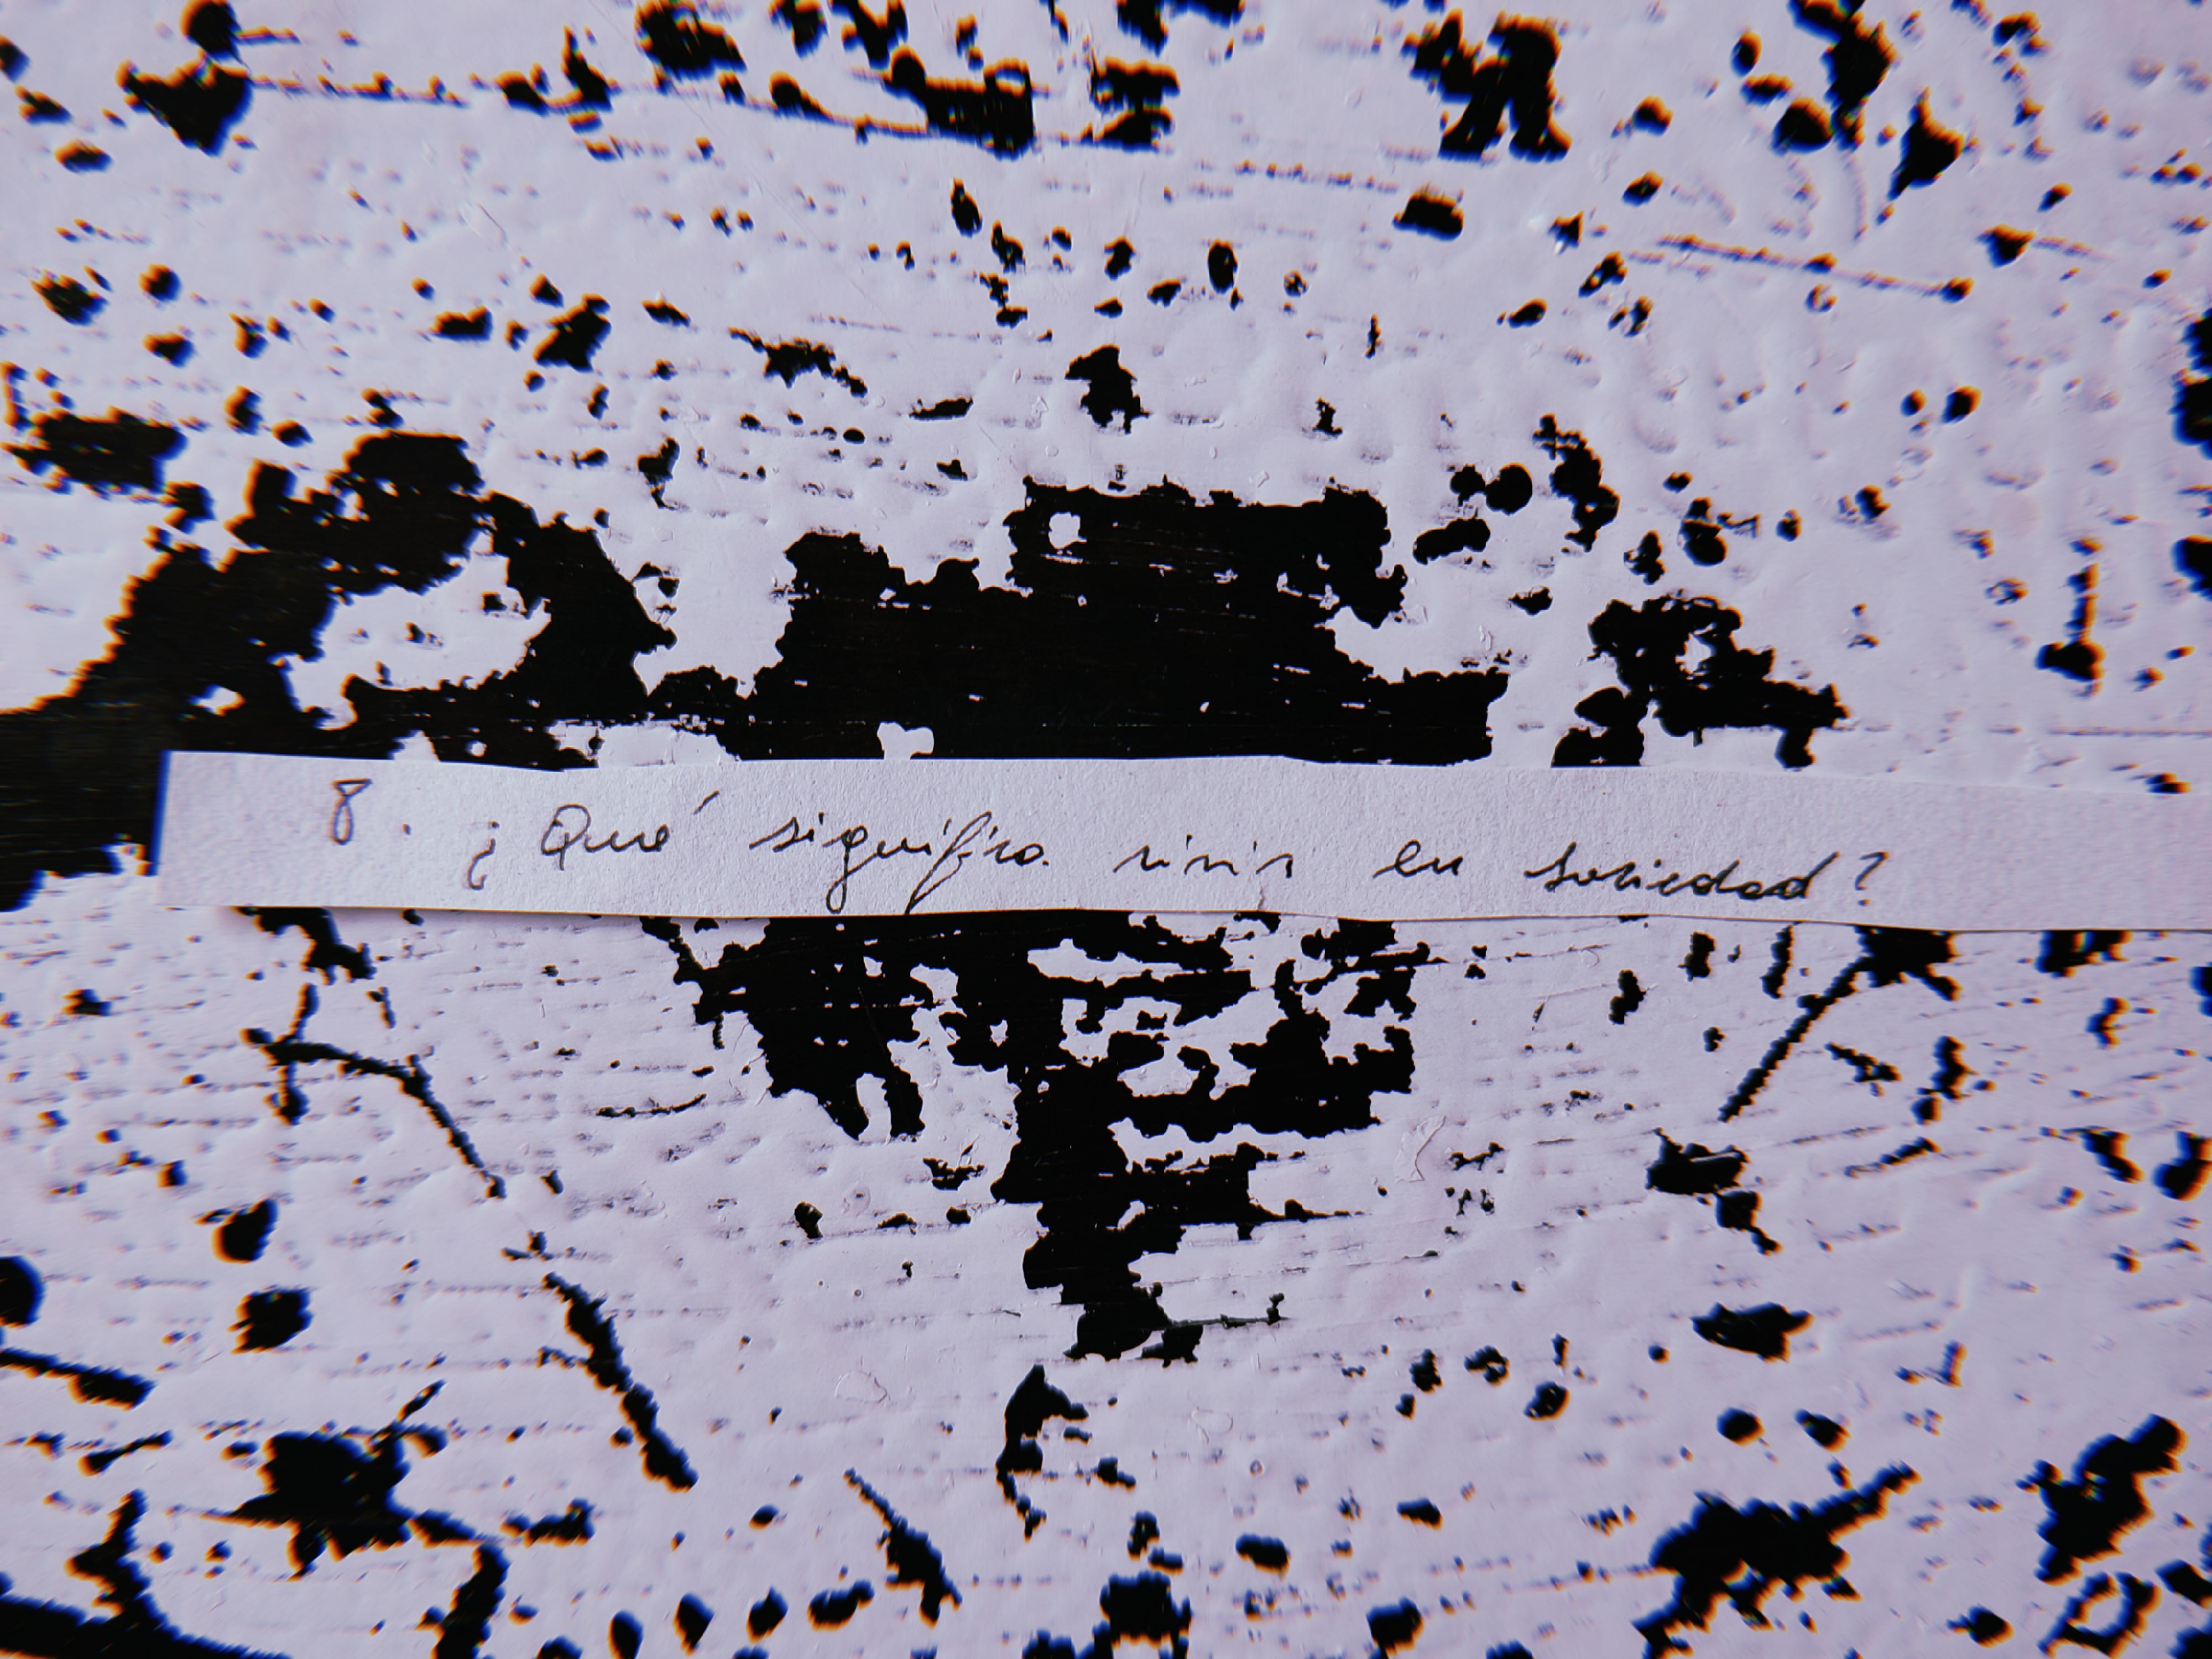 8. ¿Qué significa vivir en sociedad?